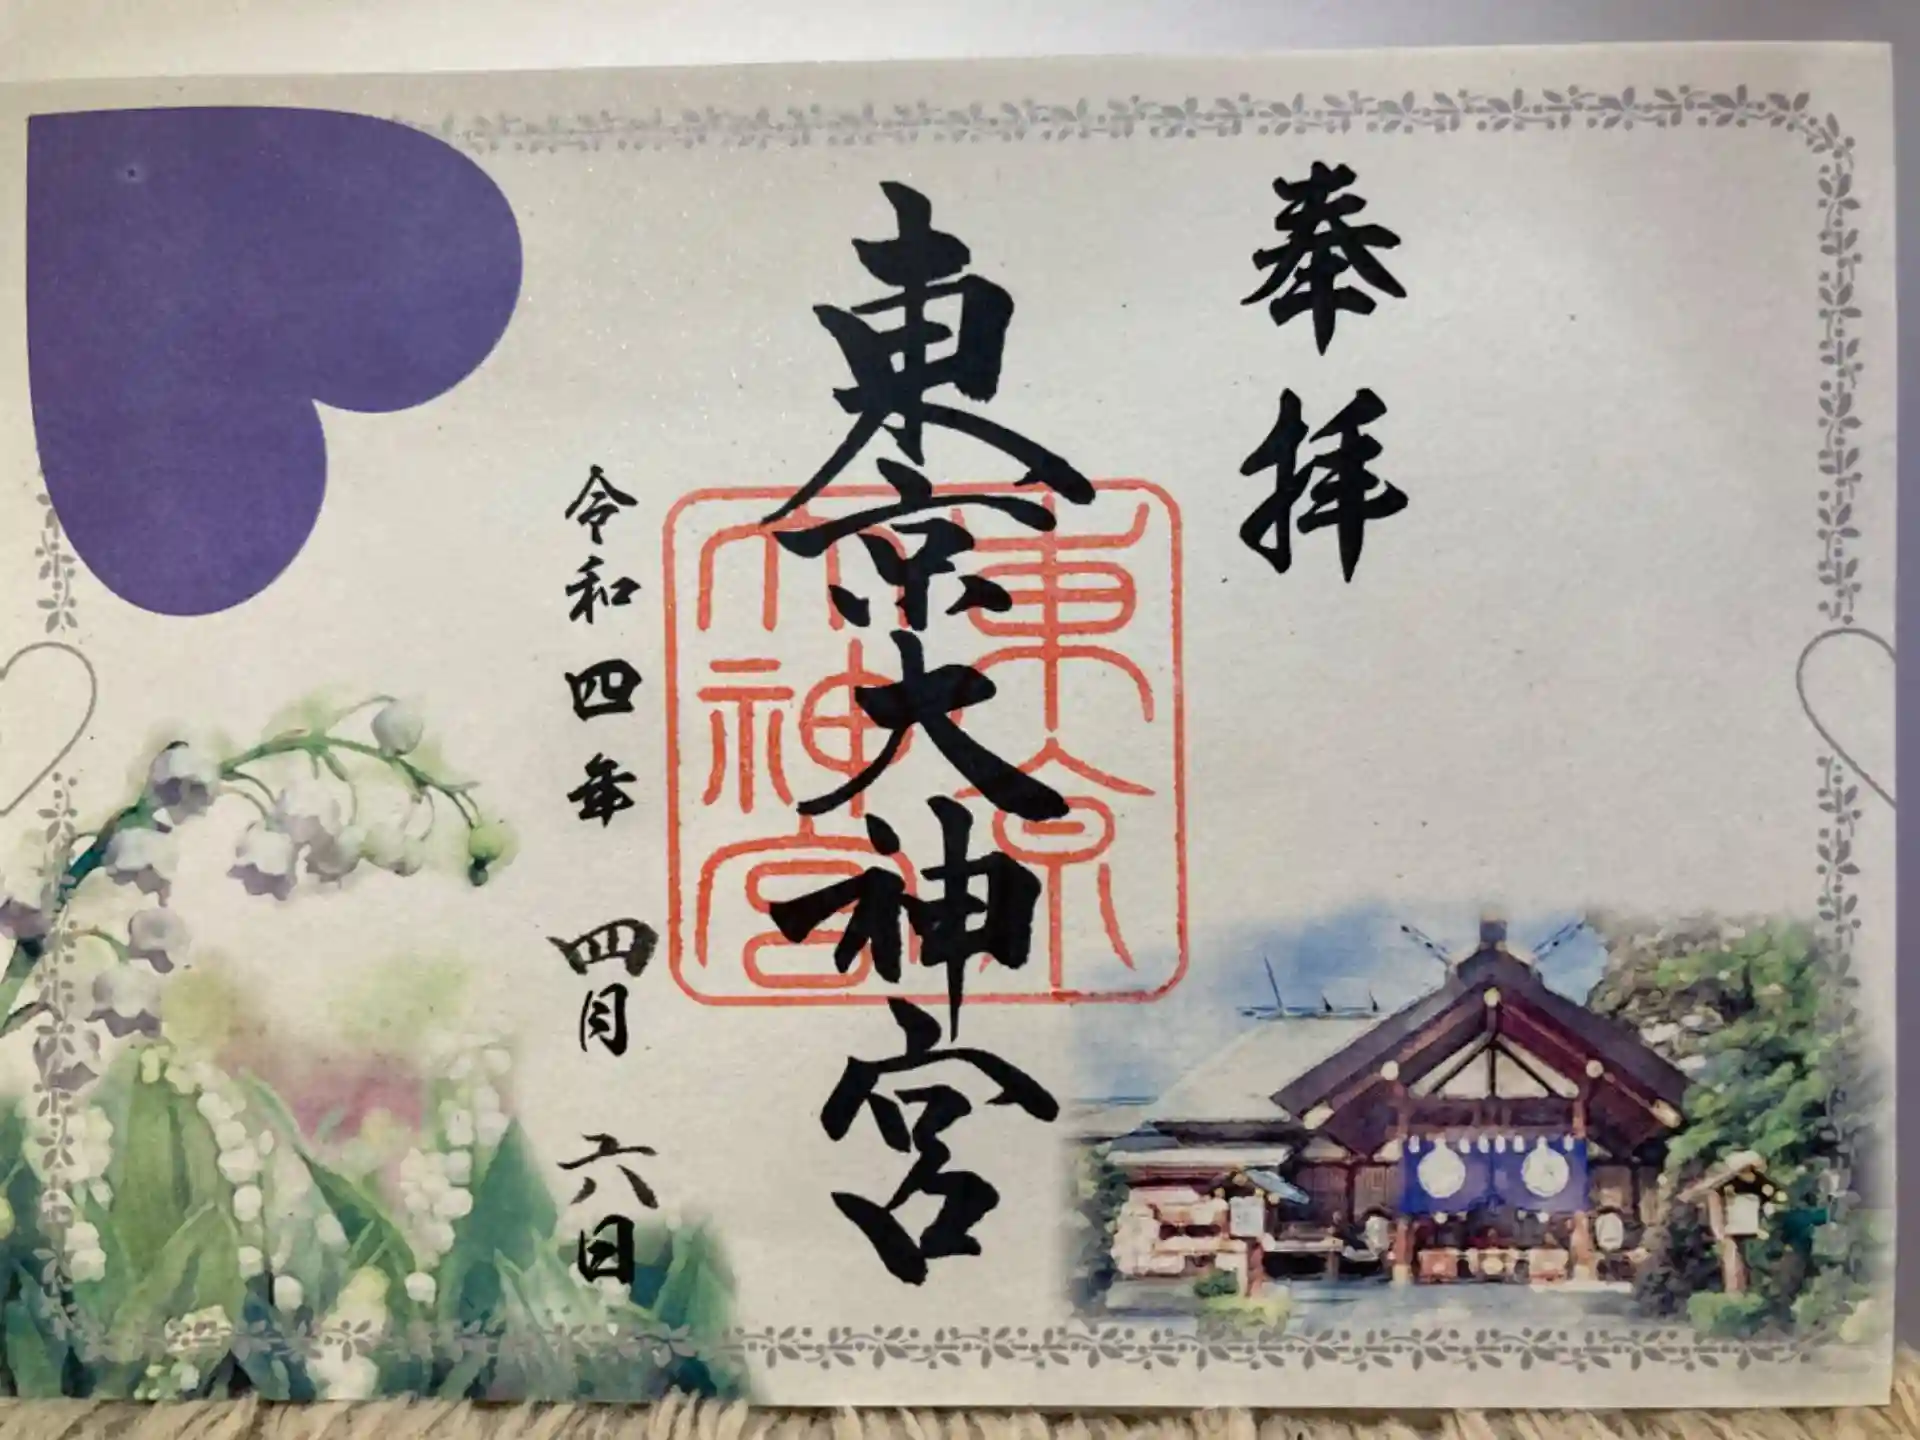 奉拝
東京大神宮
東京
大神宮
令和四年 四月 六日